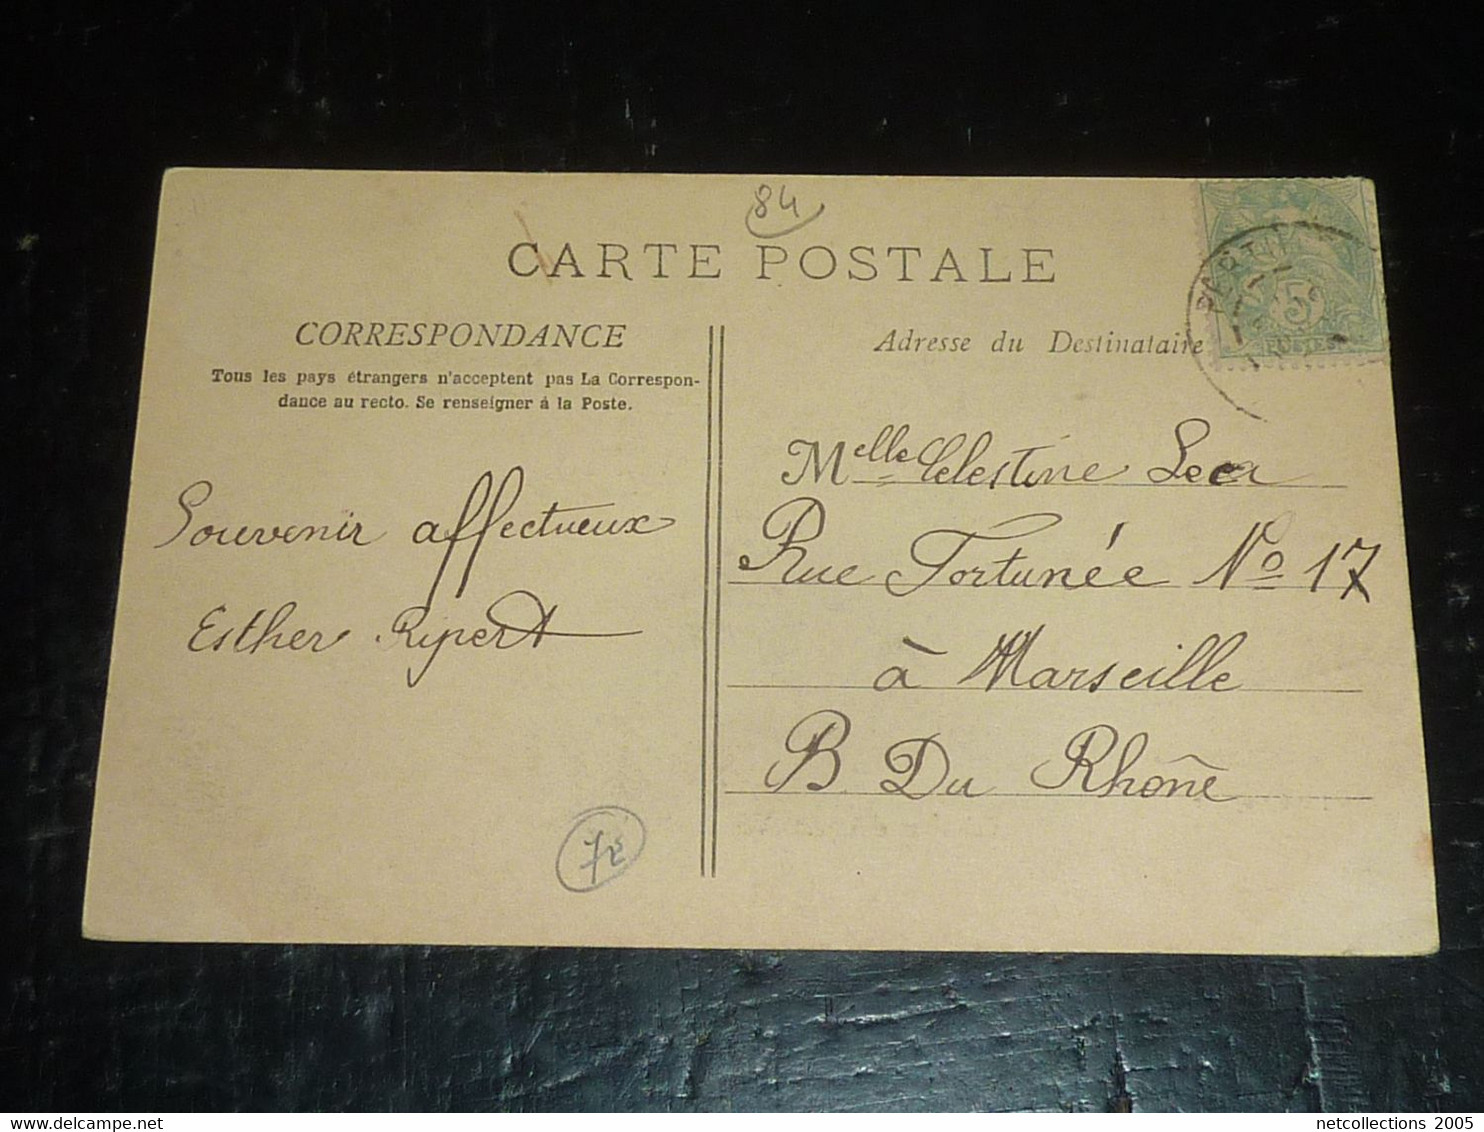 84
CARTE POSTALE
CORRESPONDANCE
Tous les pays étrangers n'acceptent pas La Correspon-
dance au recto. Se renseigner à la Poste.
Souvenir affectueux
Esther Ripert
Adresse du Destinataire
5c
POSTES
Melle Célestine Leca
Rue Fortunée No 17
à Marseille
B. Du Rhône
netcollections 2005